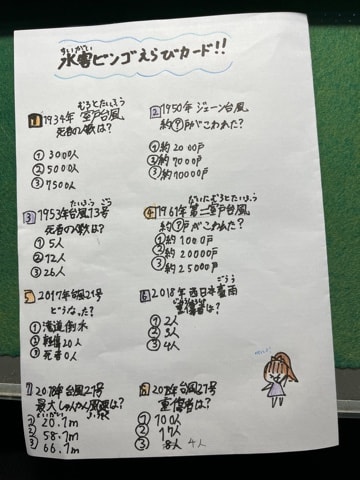 すいがい
水害ビンゴえらびカード!!
むろとたいふう
1 1934年室戸台風
死者の数は?
① 3000人
② 5000人
③ 7500人
2 1950年ジェーン台風
約?戸がこわれた?
① 約2000戸
② 約7000戸
③ 約10000戸
たいふう ごう
3 1953年台風13号
死者の数は?
① 5人
② 12人
③ 26人
だいにむろとたいふう
4 1961年第二室戸台風
約?戸がこわれた?
① 約1000戸
② 約20000戸
③ 約25000戸
5 2017年台風21号
どうなった?
① 滝道倒木
② 軽傷20人
③ 死者0人
ごうう
6 2018年西日本豪雨
重傷者は?
① 2人
② 3人
③ 4人
7 2018年台風21号
最大しゅんかん風速は?
20.1m
58.1m
66.1m
8 2018年台風21号
重傷者は?
4人